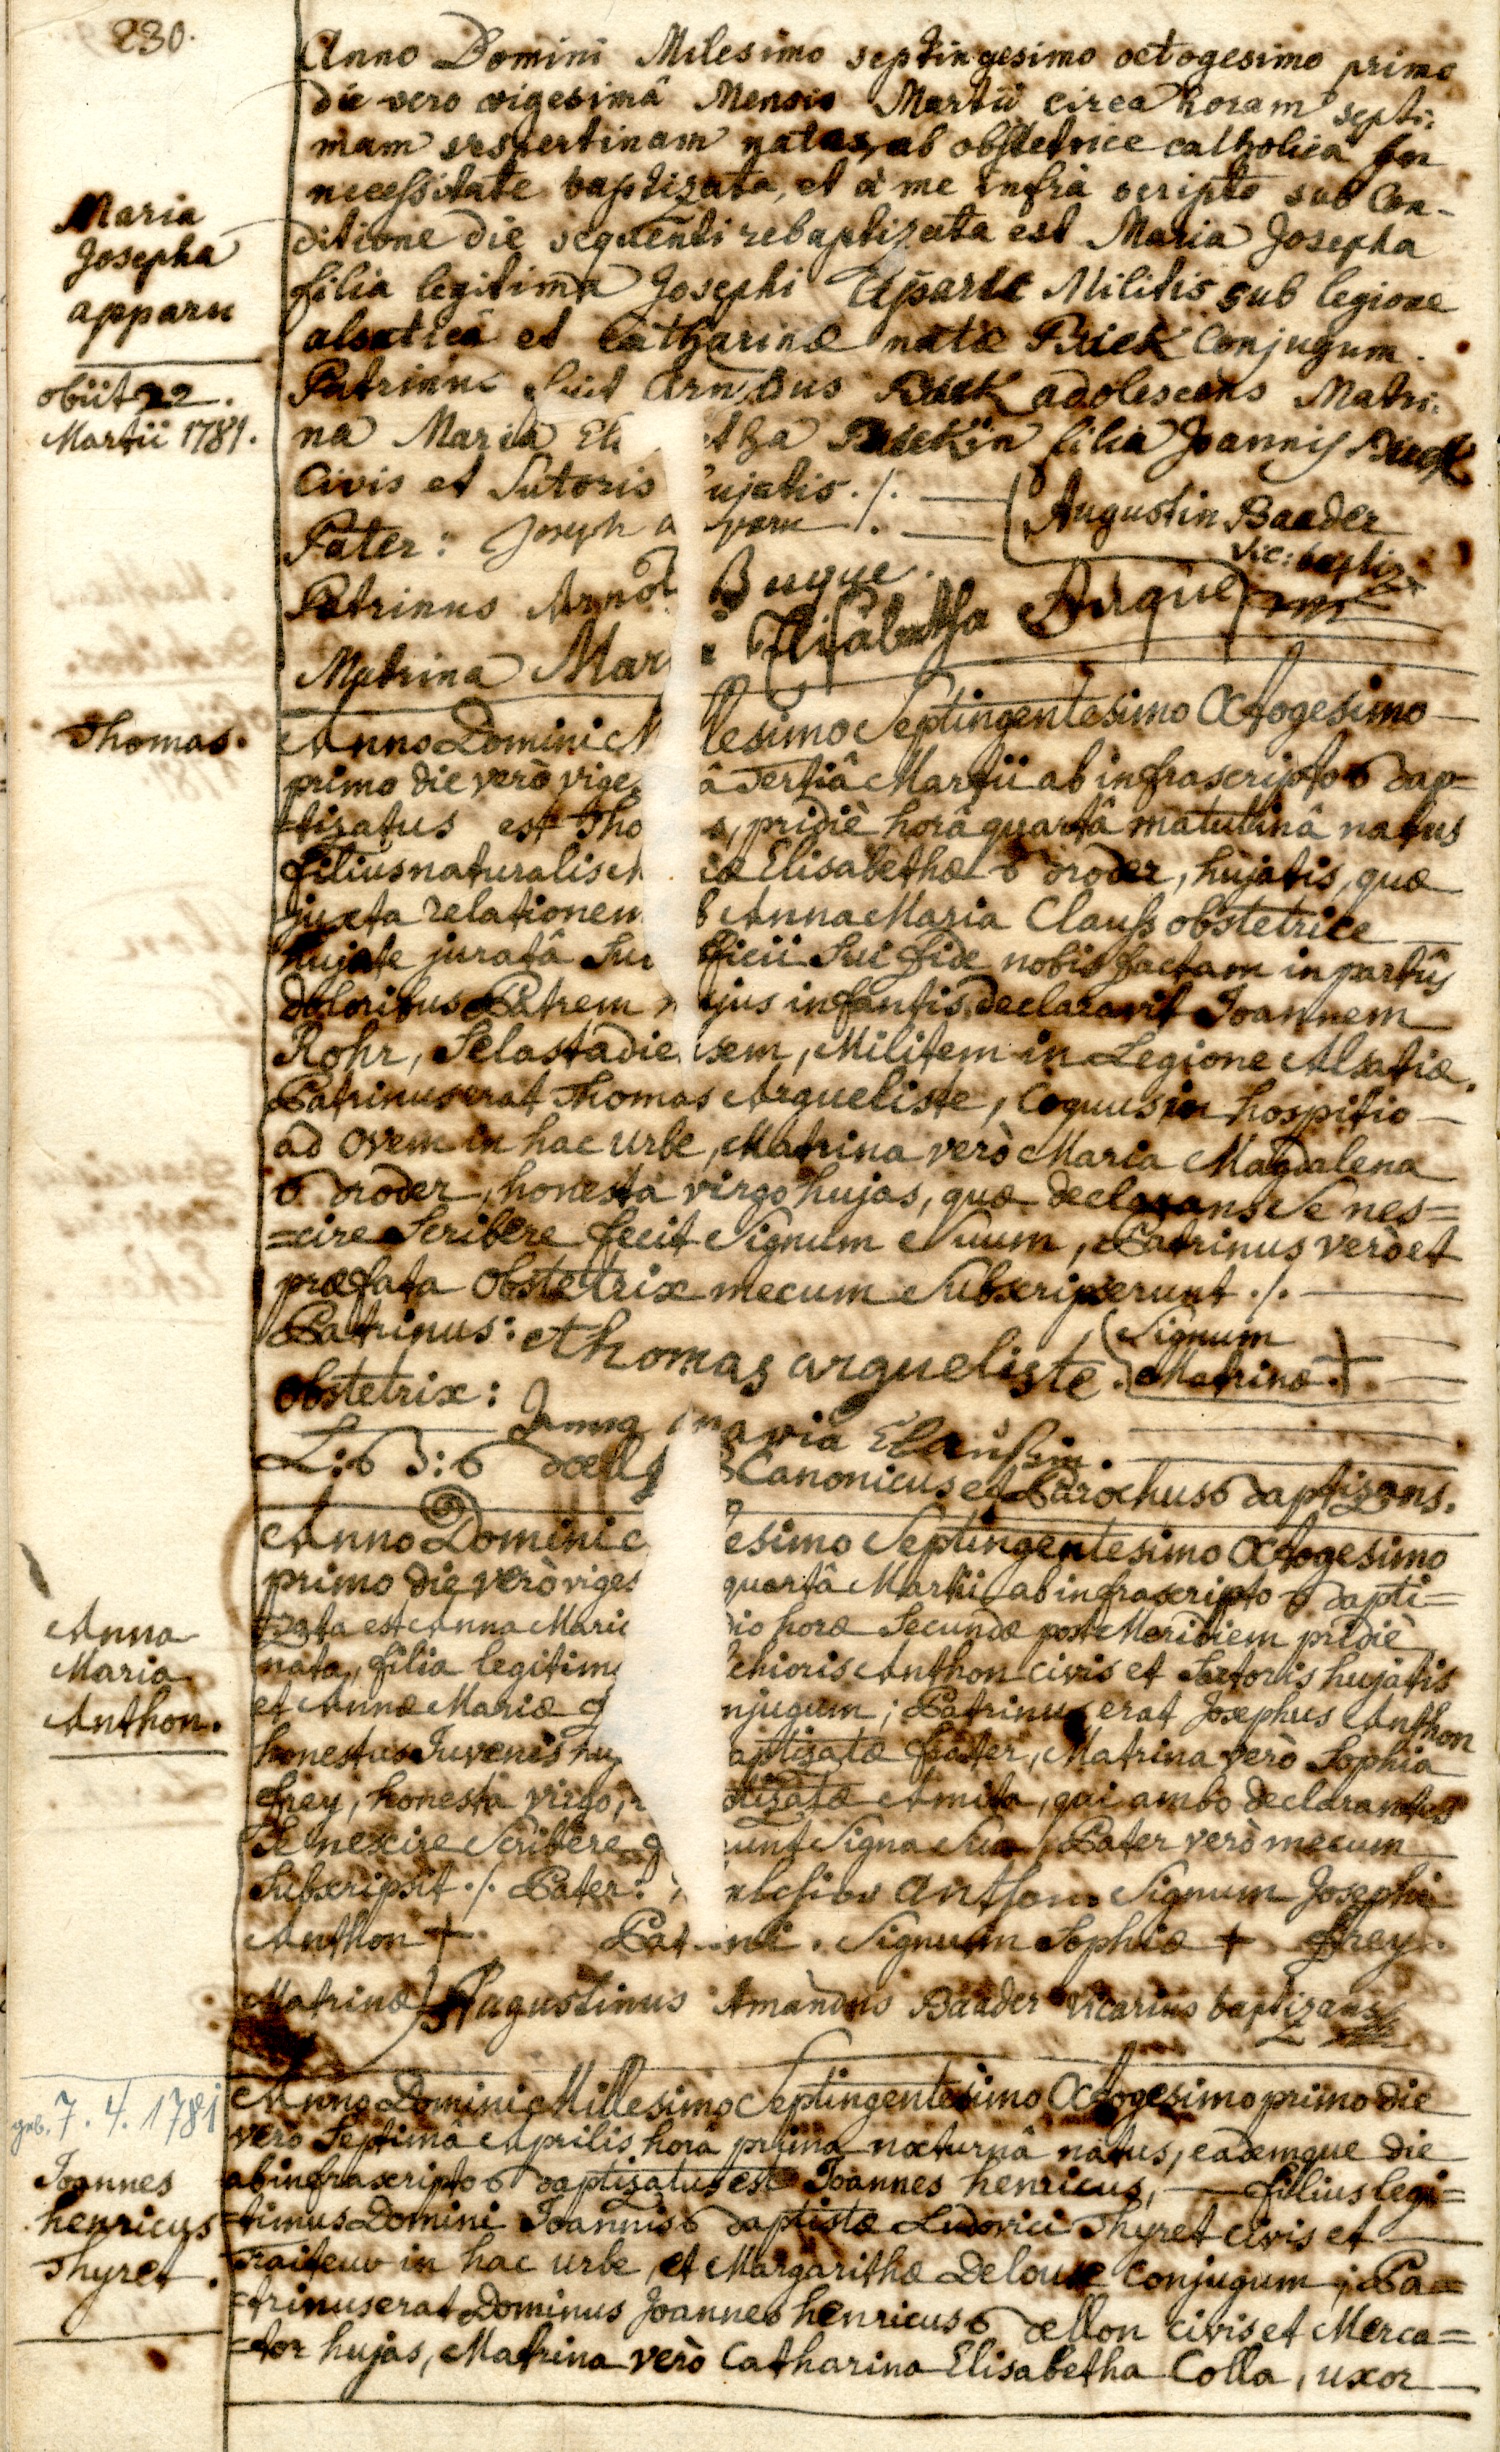 230.
Anno Domini Milesimo septingesimo octogesimo primo
die vero vigesimâ Mensis Martii circa horam septi:
mam vespertinam nata, ab obstetrice catholica in
necessitate baptizata, et à me infrà scripto sub Con-
ditione die sequenti rebaptizata est Maria Josepha
filia legitima Josephi Militis sub legione
alsaticâ et Catharinæ natæ Conjugum.
Patrinus fuit adolescens Matri:
na Maria filia Joannis
Civis et Sutoris ujatis ./.
Maria
Josepha
apparu
obiit 22.
Martii 1781.
Pater: Joseph a paru ./.
Augustin Baader
vic: baptiz
Patrinus Arnol Buque.
Matrina Mar Elisabetha Buque
Thomas.
Anno Domini M lesimo Septingentesimo Octogesimo
primo die verò vige â tertiâ Martii ab infrascripto Bap=
tizatus est Tho s, pridiè horâ quartâ matutinâ natus
filius naturalis M iæ Elisabethæ Broder, hujatis, quæ
juxta relationem b Anna Maria Clauss obstetrice
hujate juratâ Su ficii Sui fide nobis factam in partûs
doloribus Patrem ujus infantis declaravit Joannem
Rohr, Selastadie sem, Militem in Legione Alsatiæ.
Patrinus erat Thomas Argueliste, Coquus in hospitio
ad Ovem in hac urbe, Matrina verò Maria Magdalena
Broder, honesta virgo hujas, quæ declarans se nes=
=cire Scribere fecit Signum Suum, Patrinus verò et
præfata Obstetrix mecum Subscripserunt ./.
Patrinus: thomas argueliste. Signum
Matrinæ +
Obstetrix: Anna maria Claussin.
L: B J: B Canonicus et Parochus Baptizans.
Anno Domini esimo Septingentesimo Octogesimo
primo die verò viges quartâ Martii ab infrascripto Bapti=
zata est Anna Mari dio horæ Secundæ post Meridiem pridiè
nata, filia legitim chioris Anthon civis et Sartoris hujatis
et Annæ Mariæ njugum; Patrinus erat Josephus Anthon
honestus Juvenis hu aptizatæ frater, Matrina verò Sophia
frey, honesta virgo, tizatæ Amita, qui ambo declarantes
Se nescire Scribere unt Signa Sua, Pater verò mecum
Subscripsit ./. Pater: elchior Anthon. Signum Josephi
Anthon + Pat ni. Signum Sophiæ + frey.
Matrinæ Augustinus Amandus Baader Vicarius baptizans
Anna
Maria
Anthon.
geb. 7. 4. 1781
Joannes
henricus
Thyret.
Anno Domini Millesimo Septingentesimo Octogesimo primo die
verò Septimâ Aprilis horâ primâ nocturnâ natus, eademque die
ab infrascripto Baptizatus est Joannes henricus, filius legi=
=timus Domini Joannis Baptistæ Ludovici Thyret civis et
Traiteur in hac urbe, et Margarithæ Deloux Conjugum; Pa=
=trinus erat Dominus Joannes henricus Bellon civis et Merca=
=tor hujas, Matrina verò Catharina Elisabetha Colla, uxor